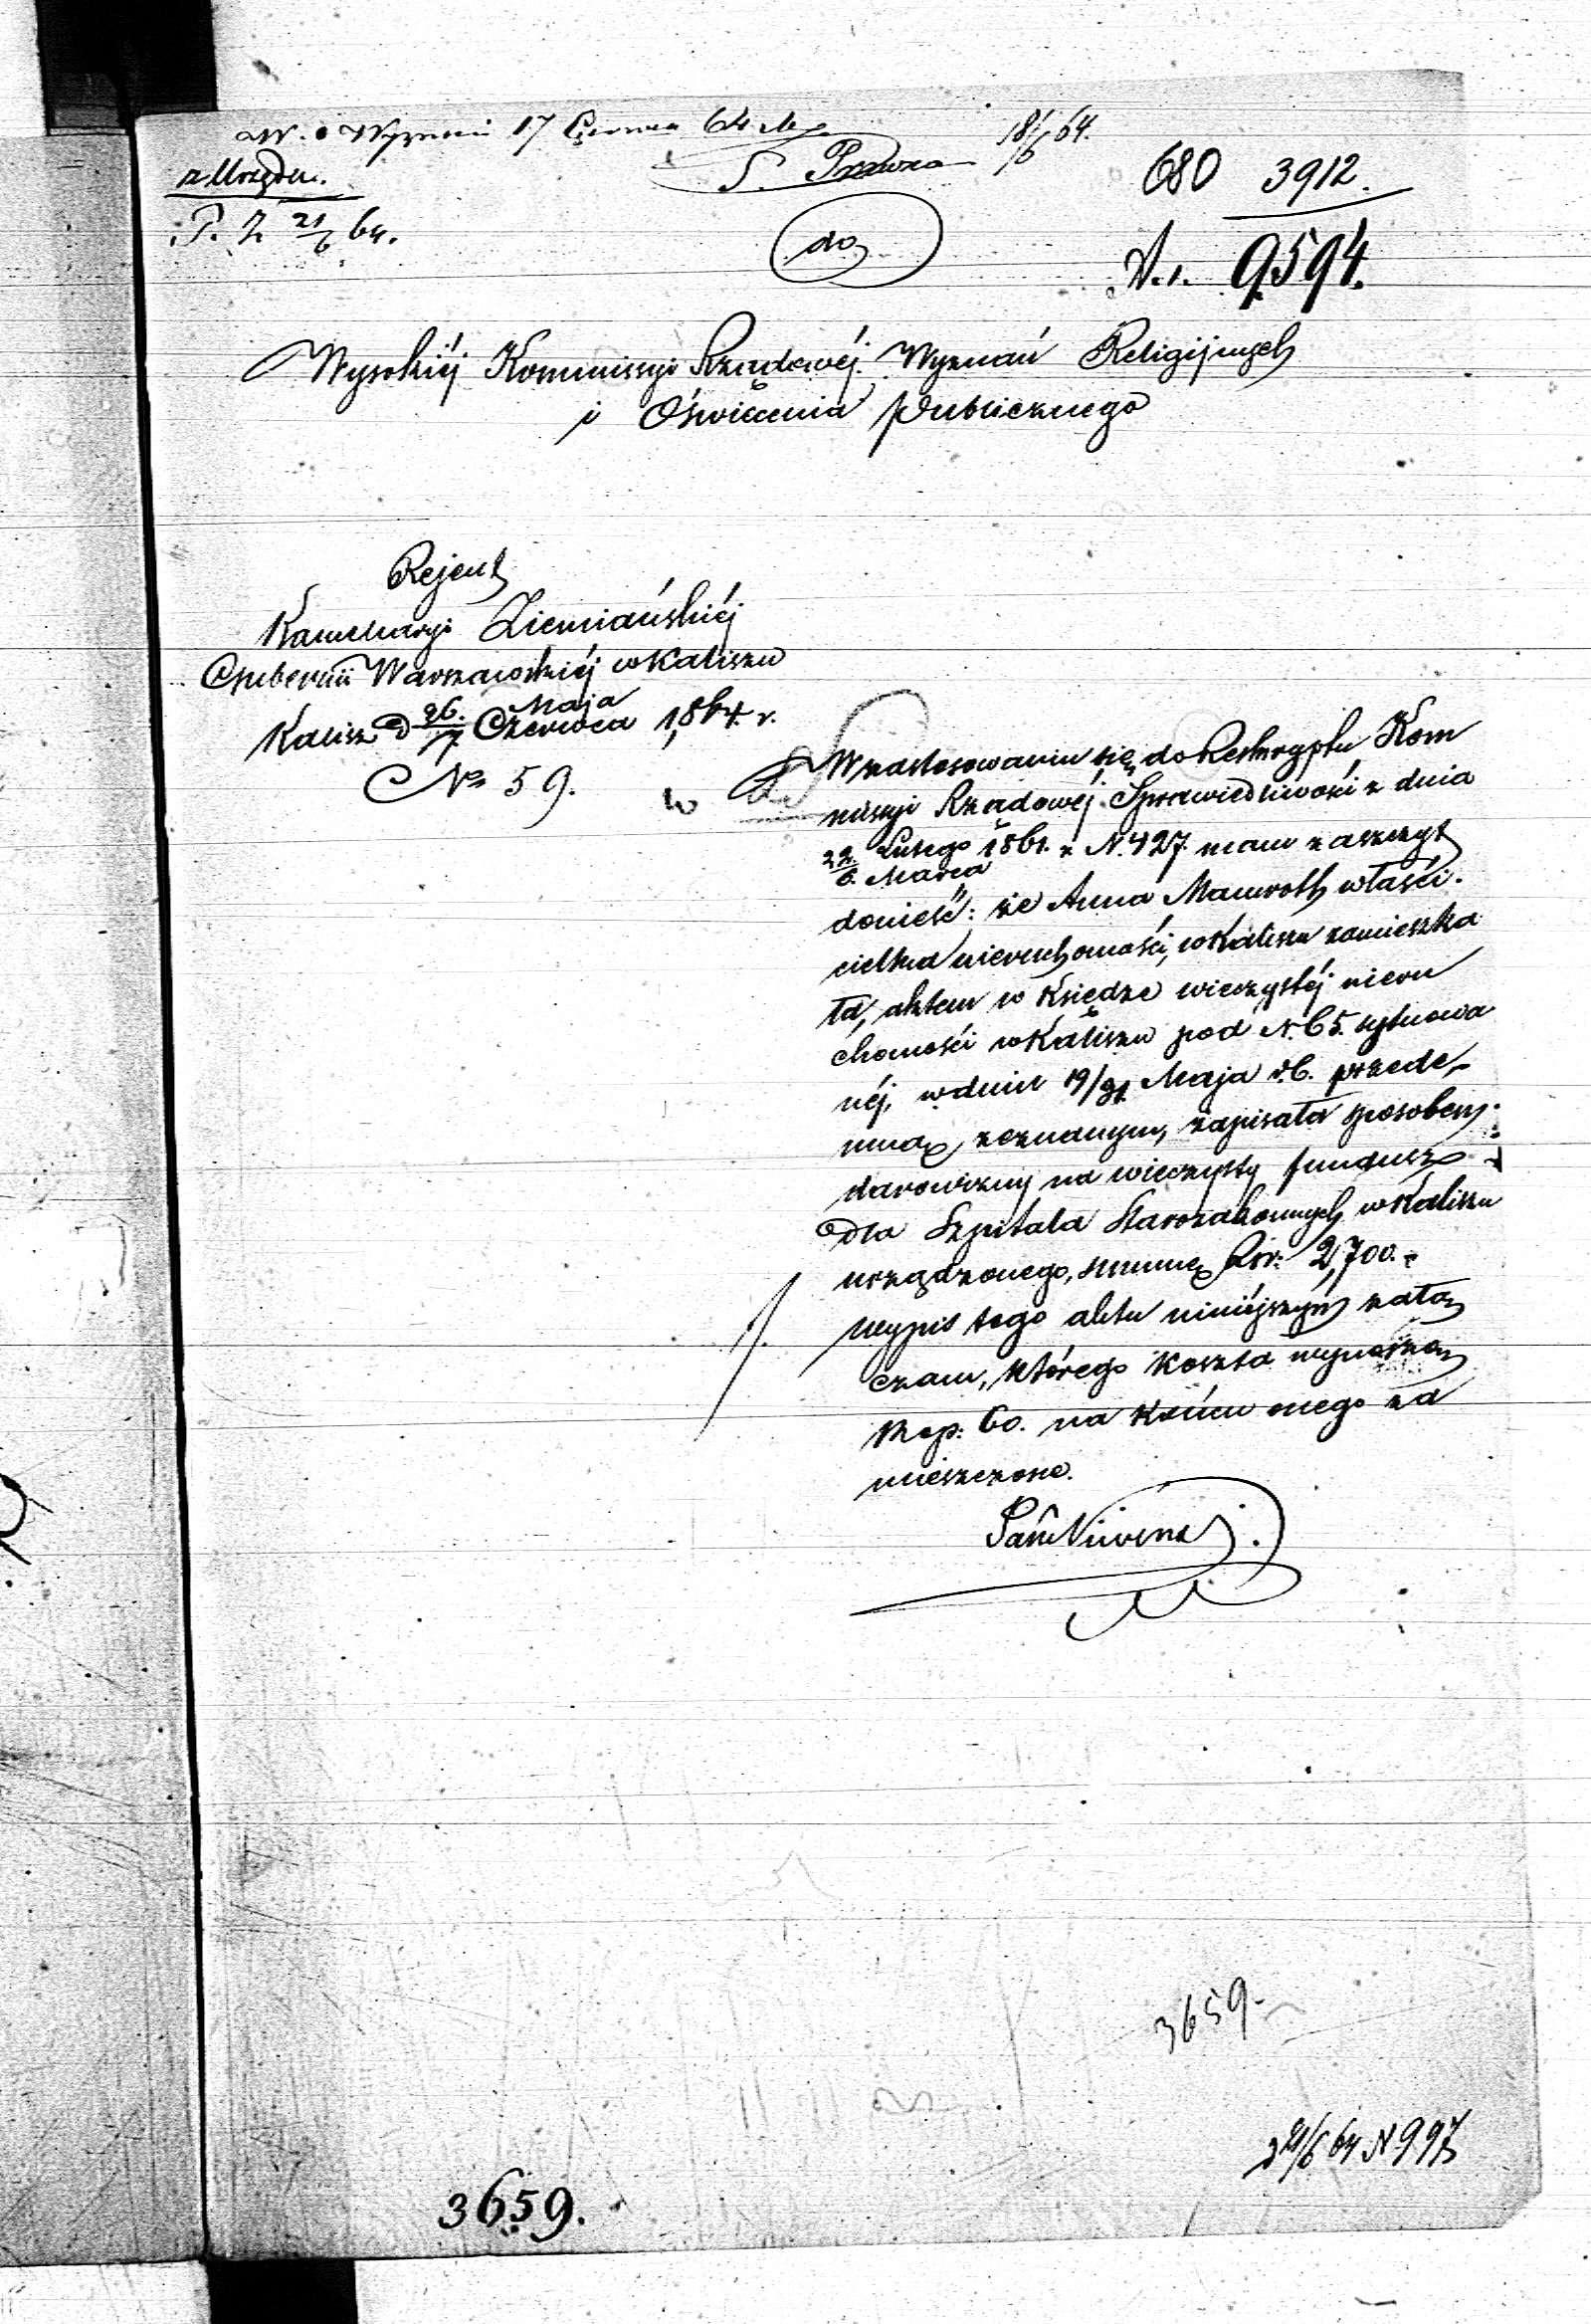 17 Czerwca 64
18/6 64.
z Urzędu.
S. Prawna
680 3912.
P. Z. 21/6 64.
do
9594.
Wysokiéj Kommissyi Rządowéj Wyznań Religijnych
i Oświecenia Publicznego
Rejent
Kancellaryi Ziemiańskiéj
Gubernii Warszawskiéj w Kaliszu
Kalisz d 26. Maja / 7. Czerwca 1,864. r.
No 59.
W zastosowaniu się do Reskryptu Kom
missyi Rządowéj Sprawiedliwości z dnia
22. Lutego / 6. Marca 1861. z N. 427. mam zaszczyt
donieść: że Anna Mamroth właści-
cielka nieruchomości, w Kaliszu zamieszka
ła, aktem w Księdze wieczystéj nieru
chomości w Kaliszu pod N. 65. sytuowa
néj, w dniu 19/31 Maja r. b. przede-
mną zeznanym, zapisała sposobem
darowizny na wieczysty fundusz
dla Szpitala Starozakonnych w Kaliszu
urządzonego, summę Rsr: 2,700.-
wypis tego aktu niniéjszym załą
czam, którego koszta wynoszą
kop: 60. na końcu onego za
mieszczone.
3659.
21/6 64 N 997
3659.